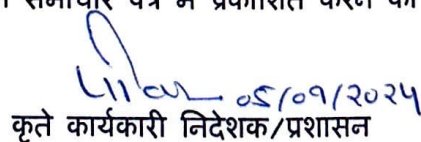 समाचार पत्र में प्रकाशित करने का
05/09/2024
कृते कार्यकारी निदेशक/प्रशासन